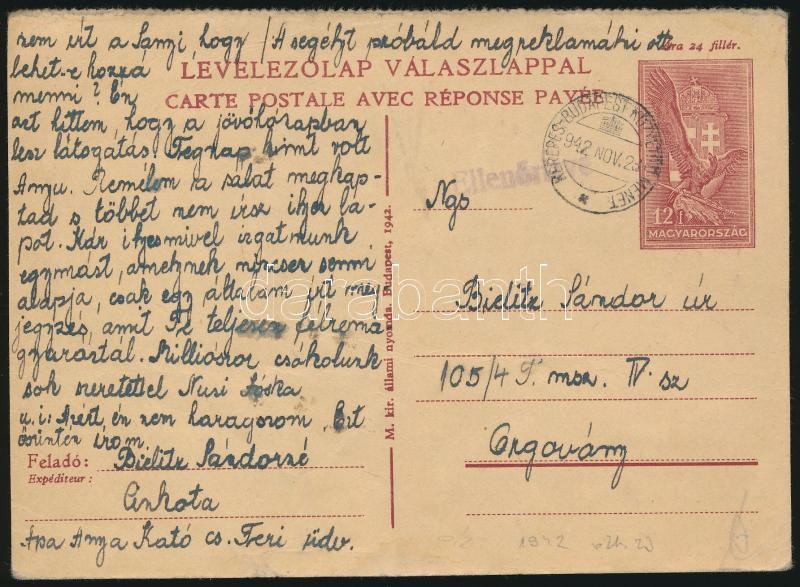 nem írt a Sanyi, hogy / A segélyt próbáld megreklamálni ott
lehet-e hozzá
menni? Én
azt hittem, hogy a jövőhónapban
lesz látogatás. Tegnap kimt volt
Anyu. Remélem a salát megkap-
tad s többet nem írsz ilyen la-
pot. Kár ilyesmivel izgatnunk
egymást, amelynek nincsen semmi
alapja, csak egy általam írt meg-
jegyzés, amit Te teljesen félrema-
gyaráztál. Milliószor csókolunk
sok szeretettel Nusi Jóska
u.i: Azért, én nem haragszom. Ezt
őszintén írom.
LEVELEZŐLAP VÁLASZLAPPAL
CARTE POSTALE AVEC RÉPONSE PAYÉE
Ára 24 fillér.
KEREPES-BUDAPEST
942 NOV. 2
Ellenőr
12 f
MAGYARORSZÁG
M. kir. állami nyomda. Budapest, 1942.
Ngs
Bielitz Sándor úr
105/49 T. msz. IV. sz
Orgovány
Feladó: Bielitz Sándorné
Expéditeur:
Cinkota
Apa Anya Kató cs. Feri üdv.
darabanth
1942